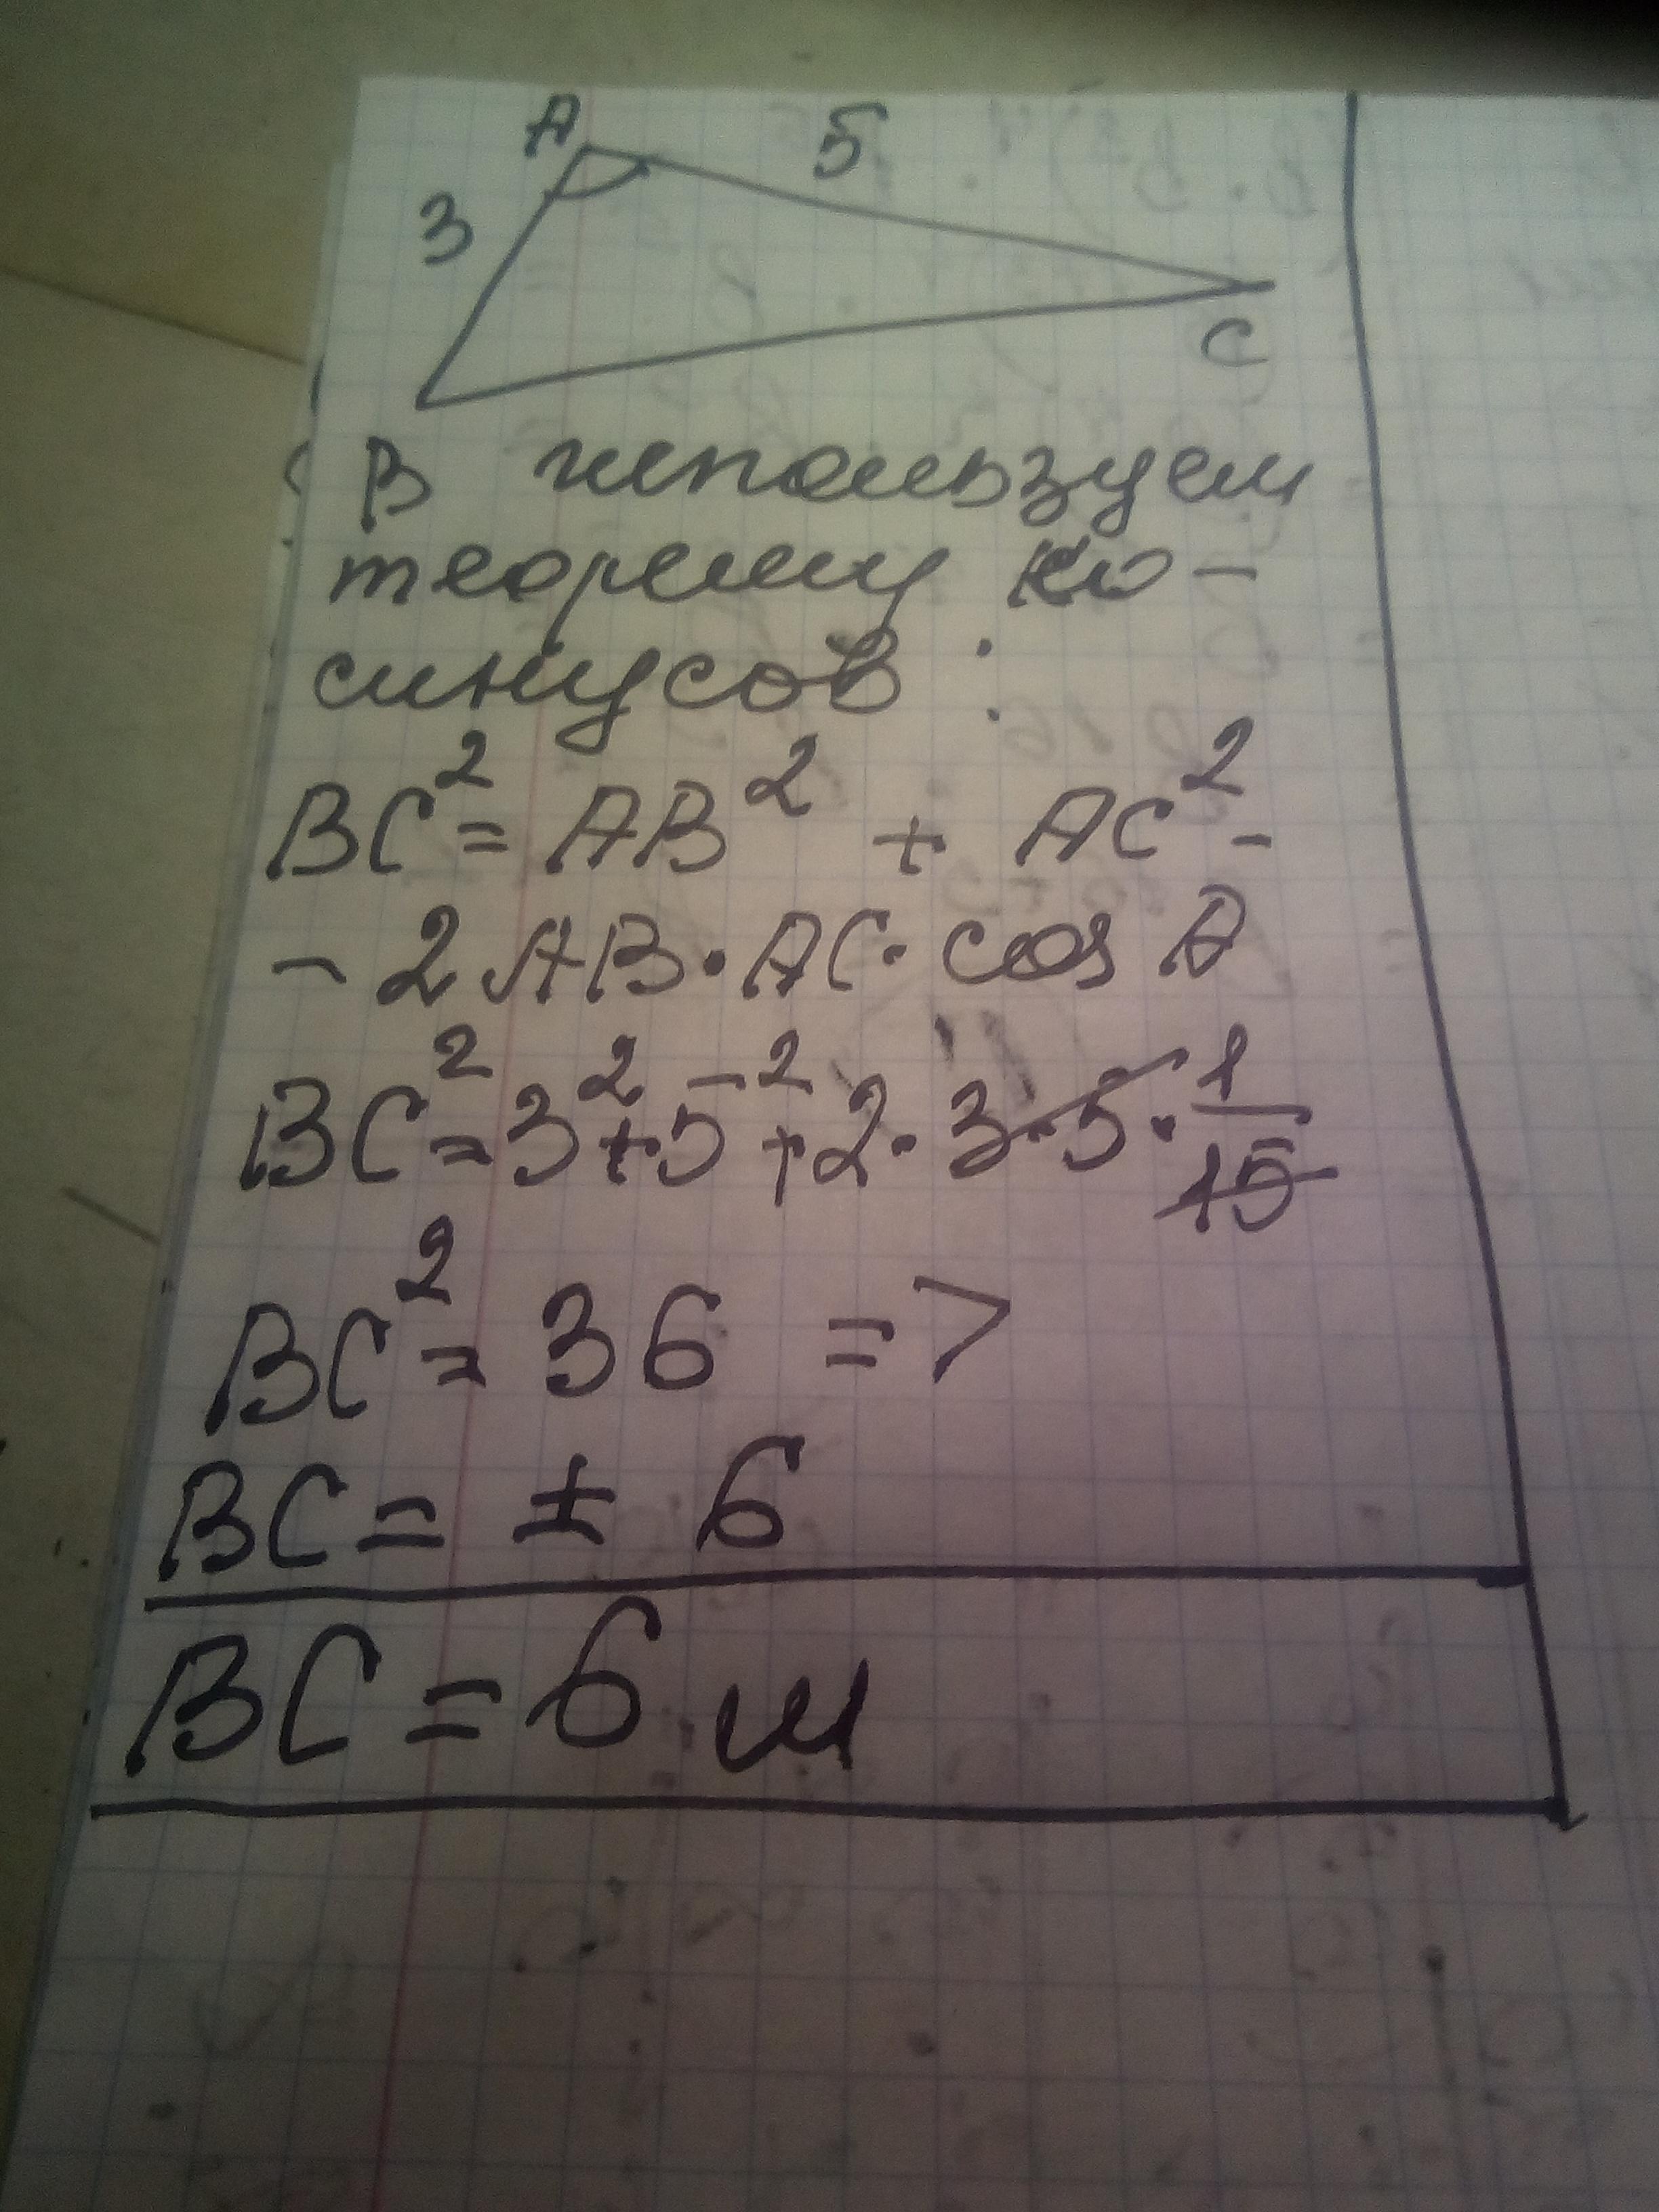 A 5
3
C
B используем
теорему ко-
синусов:
BC² = AB² + AC² -
- 2 AB · AC · cos A
BC² = 3² + 5² + 2 · 3 · 5 · 1/15
BC² = 36 =>
BC = ± 6
BC = 6 м